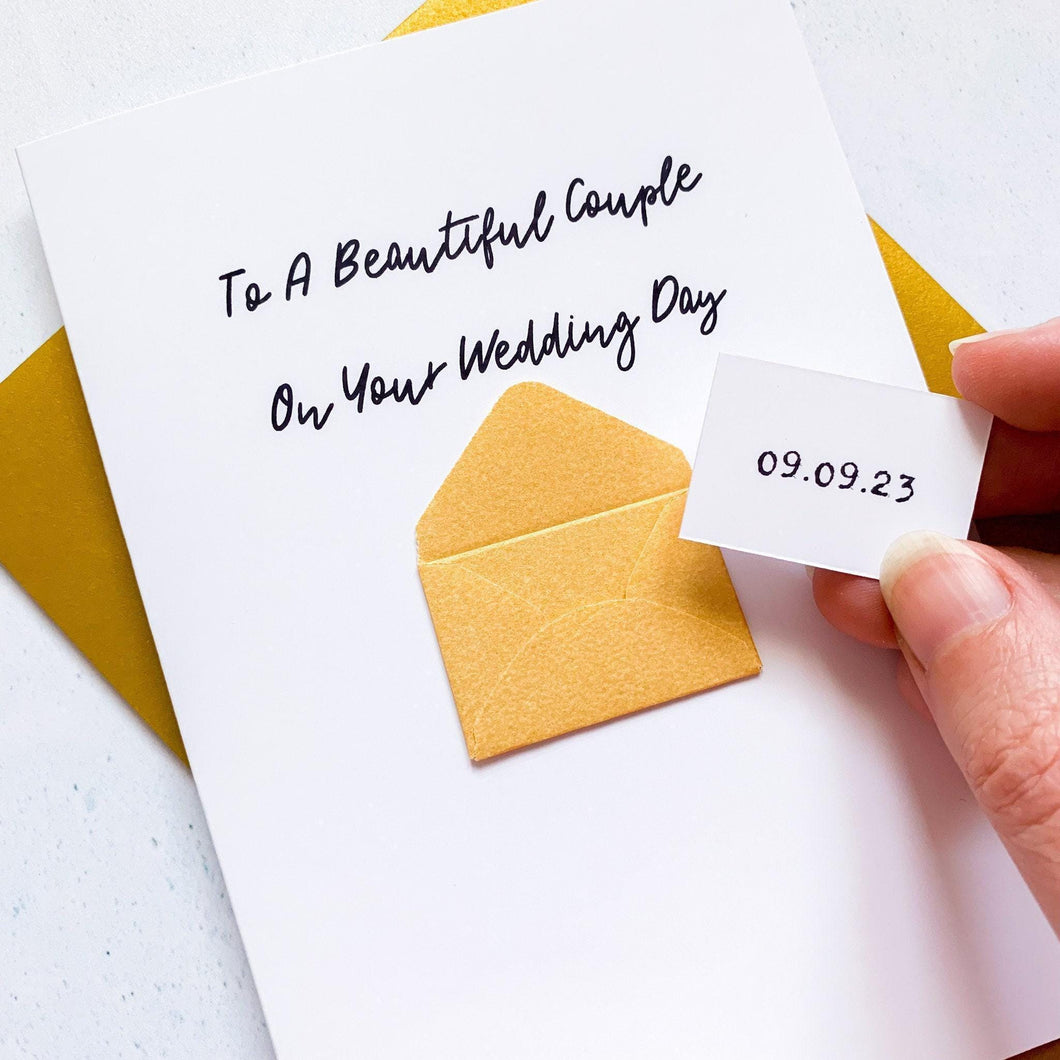 To A Beautiful Couple
On Your Wedding Day
09.09.23